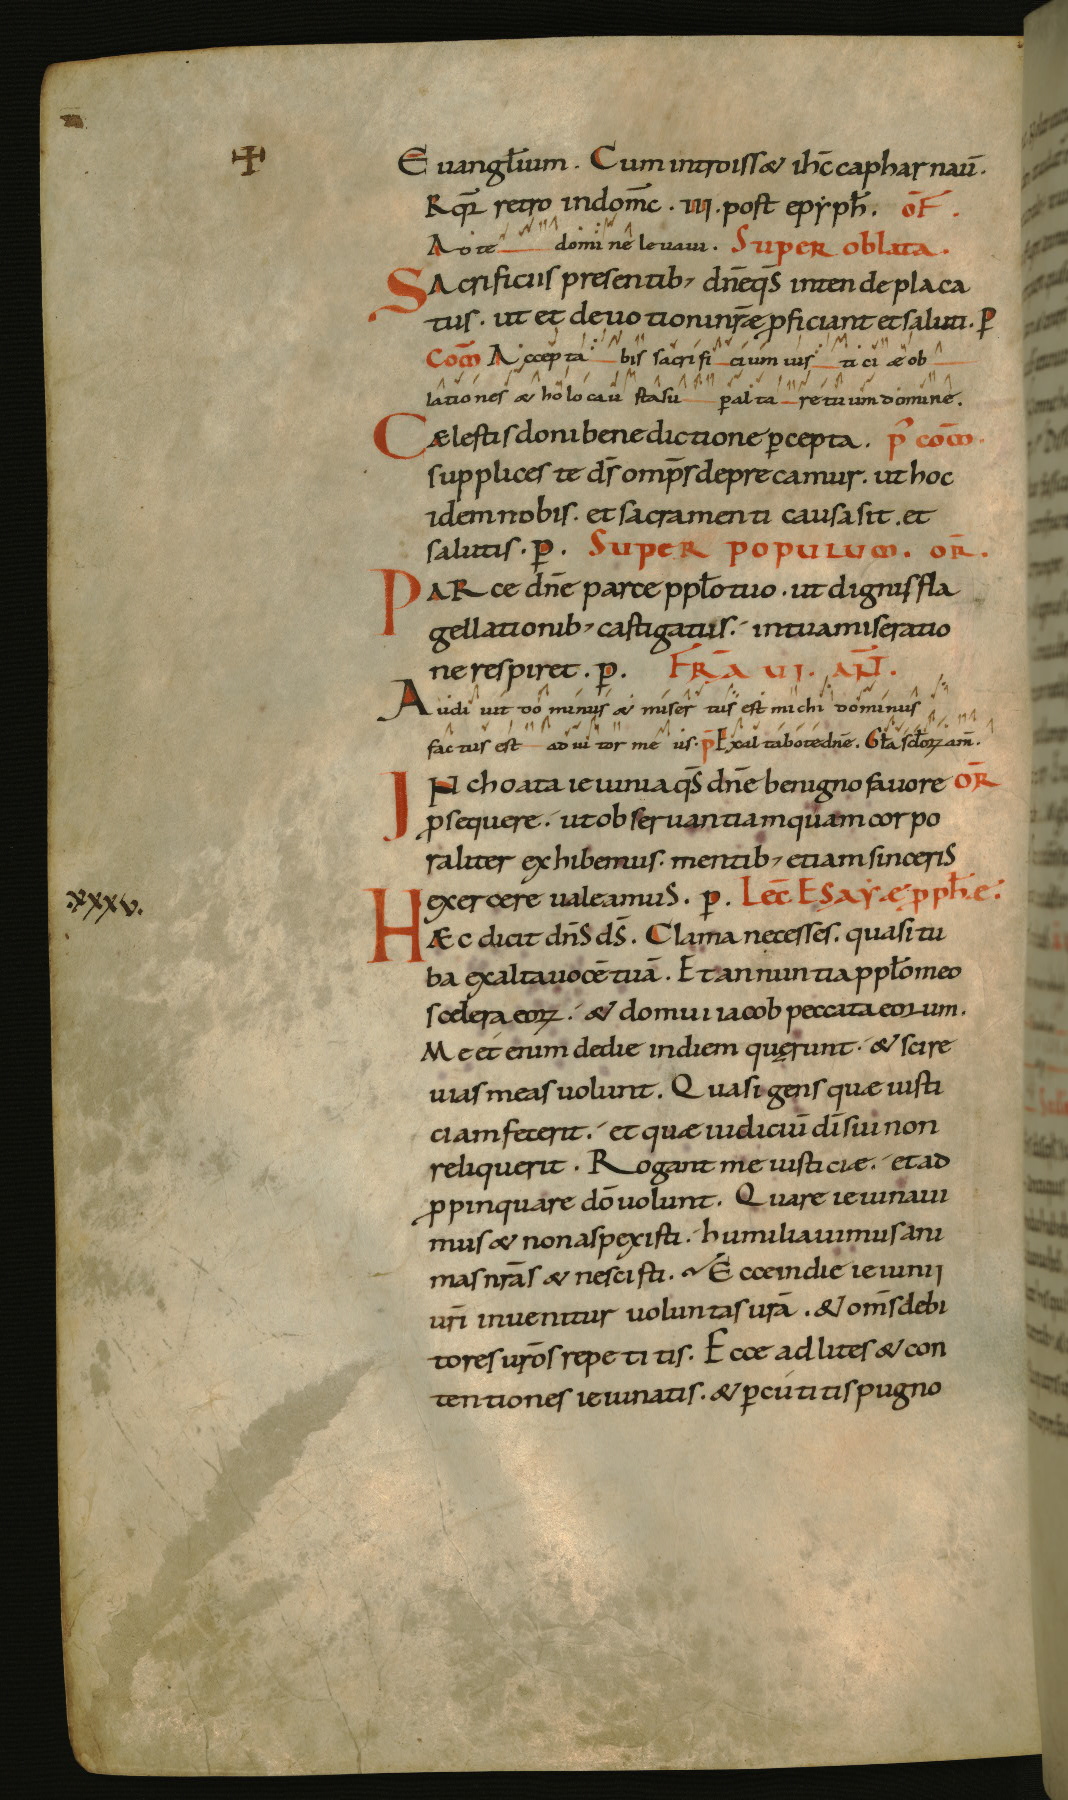 ✠
Euangl̄ium . Cum introiss& ih̄c capharnaū.
Rq̄r retro in dom̄c . III . post epẏph̄ . oF̄ .
Ad te domine leuaui . Super oblata .
Sacrificiis presentib; dn̄e qs̄ intende placa
tus . ut et deuotioni nr̄æ p̱ficiant et saluti . P̱
Com̄ Acceptabis sacrificium iusticiæ ob
lationes & holocausta su p̱ altare tuum domine .
Cælestis doni benedictione p̱cepta . p̄ com̄ .
supplices te ds̄ omp̄s deprecamur . ut hoc
idem nobis . et sacramenti causa sit . et
salutis . p̱ . Super populum . or̄ .
Parce dn̄e parce ppl̄o tuo . ut dignis fla
gellationib; castigatus . in tua miseratio
ne respiret . p̱ . FR̄A VI . AN̄T .
Audiuit dominus & misertus est michi dominus
factus est adiutor meus . p̄ Exaltabo te dn̄e . Gl̄a scl̄oꝝ am̄ .
Inchoata ieiunia qs̄ dn̄e benigno fauore or̄
p̱sequere . ut obseruantiam quam corpo
raliter exhibemus . mentib; etiam sinceris
.xxxv.
exercere ualeamus . p̱ . Lec̄ Esaẏæ p̱ph̄e :
Hæc dicit dn̄s ds̄ . Clama ne cesses . quasi tu
ba exalta uocē tuā . Et annuntia ppl̄o meo
scelera eoꝝ . & domui iacob peccata eorum .
Me et enim de die in diem quęrunt . & scire
uias meas uolunt . Quasi gens quæ iusti
ciam fecerit . et quæ iudiciū dī sui non
reliquerit . Rogant me iusticiæ . et ad
p̱pinquare dō uolunt . Quare ieiunaui
mus & non aspexisti . humiliauimus ani
mas nr̄as & nescisti . Ecce in die ieiunii
ur̄i inuenitur uoluntas ur̄a . & om̄s debi
tores ur̄os repetitis . Ecce ad lites & con
tentiones ieiunatis . & p̱cutitis pugno